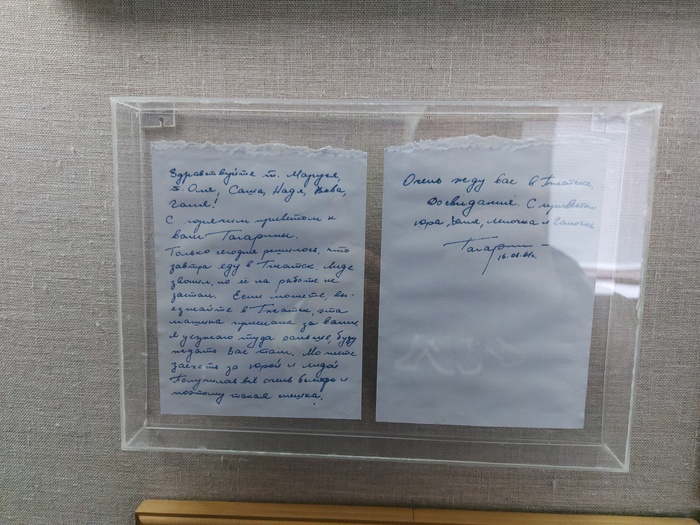 Здравствуйте т. Маруся,
т. Оля, Саша, Надя, Вова,
Галя!
С горячим приветом к
вам Гагарины.
Только сегодня решилось, что
завтра еду в Гжатск. Лиде
звонил, но её на работе не
застал. Если можете вы-
езжайте в Гжатск, эта
машина прислана за вами
я уезжаю туда раньше, буду
ждать Вас там. Можете
заехать за Юрой и Лидой
Получилось всё очень быстро и
поэтому такая спешка.
Очень жду вас в Гжатске,
До свидания. С приветом
Юра, Валя, Леночка и Галочка
Гагарин
16.06.61г.